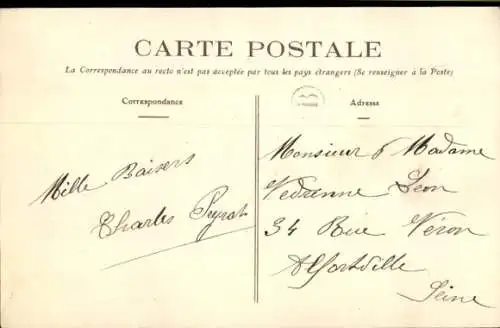 CARTE POSTALE
La Correspondance au recto n'est pas acceptée par tous les pays étrangers (Se renseigner à la Poste)
Correspondance
Mille Baisers
Charles Peyrat
Adresse
Monsieur & Madame
Vedrenne Léon
34 Rue Véron
Alfortville
Seine